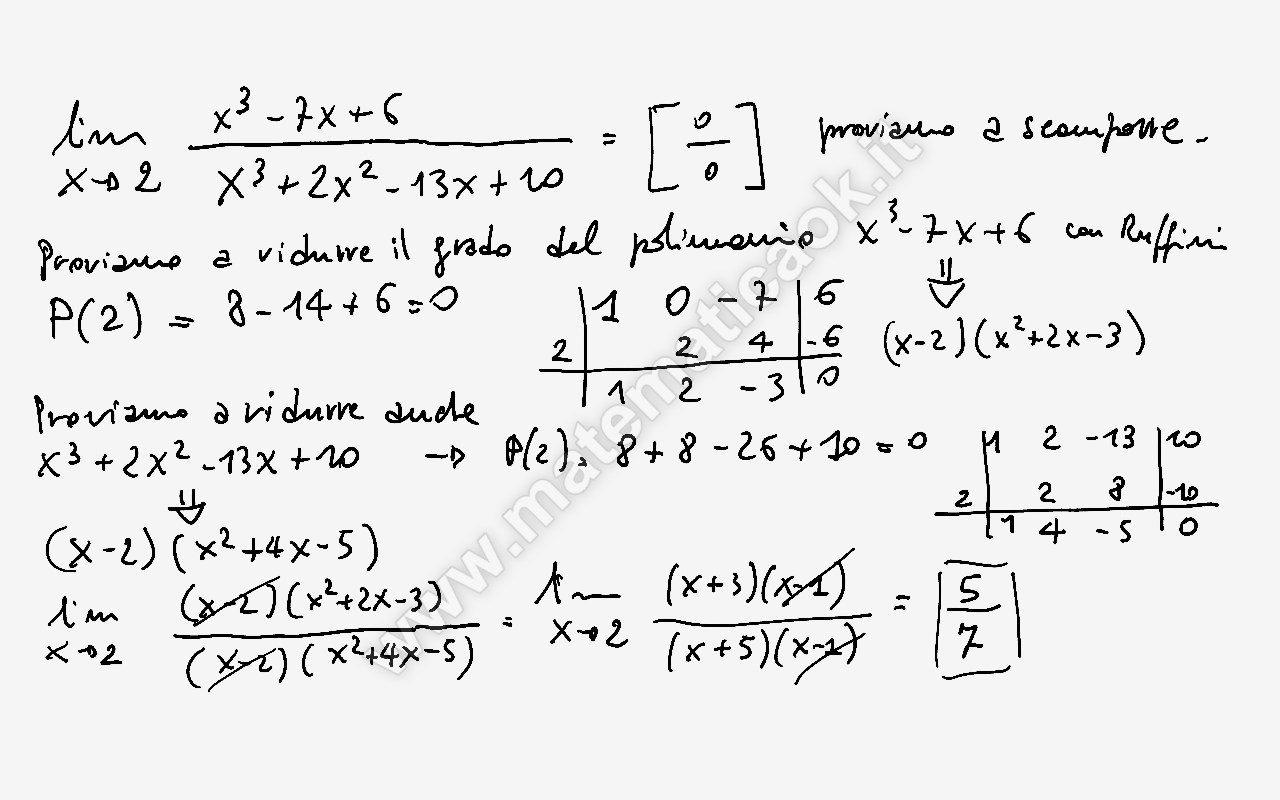 lim x→2 (x³ - 7x + 6)/(x³ + 2x² - 13x + 10) = [0/0] proviamo a scomporre.
Proviamo a ridurre il grado del polinomio x³ - 7x + 6 con Ruffini
P(2) = 8 - 14 + 6 = 0
1 0 -7 6
2 2 4 -6
1 2 -3 0
⇓
(x-2)(x²+2x-3)
Proviamo a ridurre anche
x³ + 2x² - 13x + 10 → P(2) = 8 + 8 - 26 + 10 = 0
1 2 -13 10
2 2 8 -10
1 4 -5 0
⇓
(x-2)(x²+4x-5)
lim x→2 (x-2)(x²+2x-3)/(x-2)(x²+4x-5) = lim x→2 (x+3)(x-1)/(x+5)(x-1) = 5/7
www.matematicaok.it